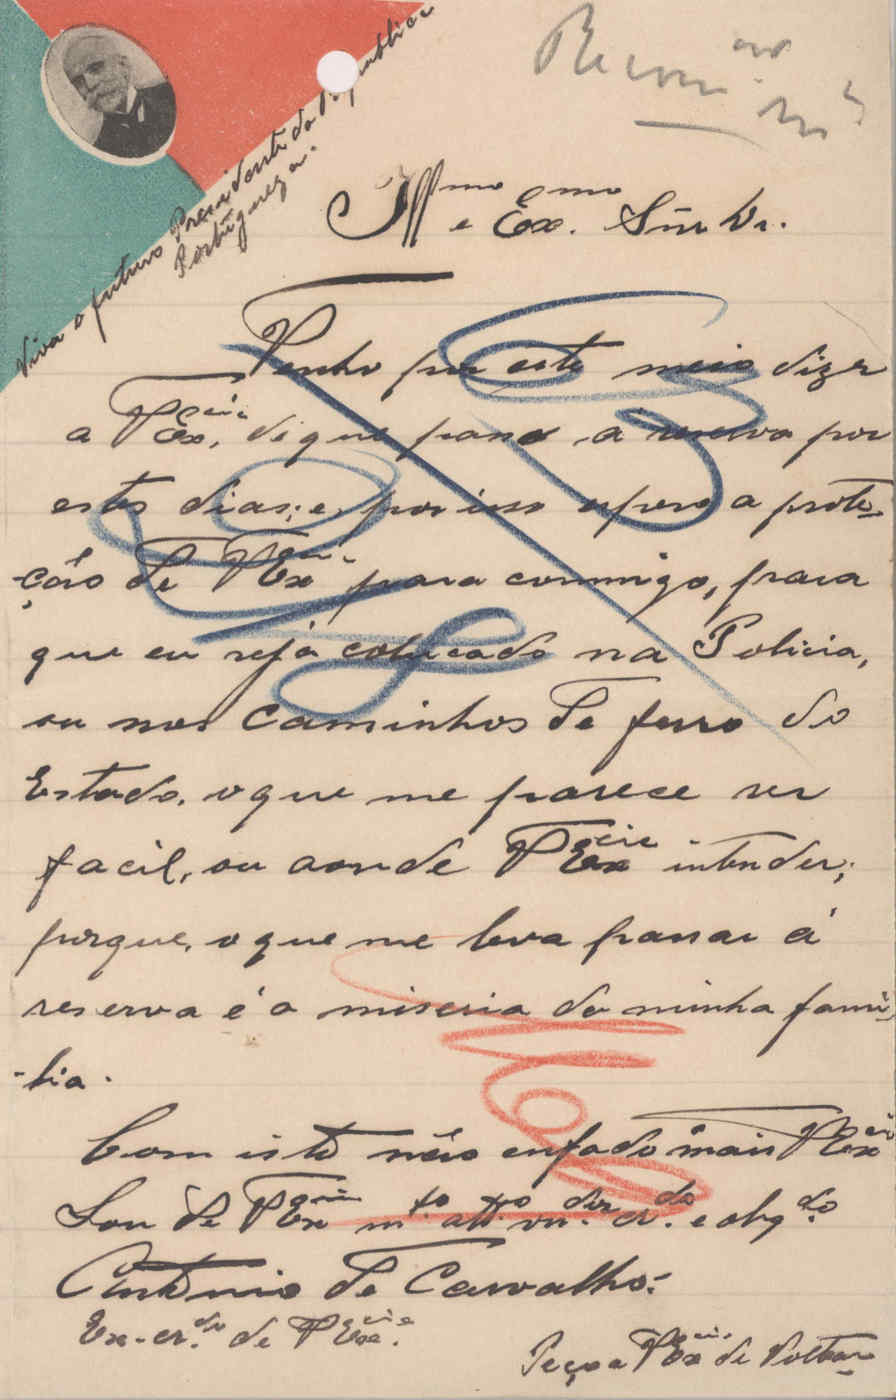 Viva o futuro Presidente da Republica
Portugueza.
Illmo e Exmo. Snr Dr.
Venho por este meio dizer
a V Excia, de que passo á reserva por
estes dias; e, por isso espero a prote-
-ção de V Excia para commigo, para
que eu sejá colucado na Policia,
ou nos Caminhos de ferro do
Estado, o que me parece ser
facil, ou aonde V Excia intender;
porque, o que me leva passar á
reserva é a miseria da minha fami-
-lia.
Com isto não enfado mais V Excia
Sou de V Excia mto. atto. vndor. crdo. e obgdo.
António de Carvalho.
Ex-crdo. de V Excia.
Peço a V Excia de Voltar